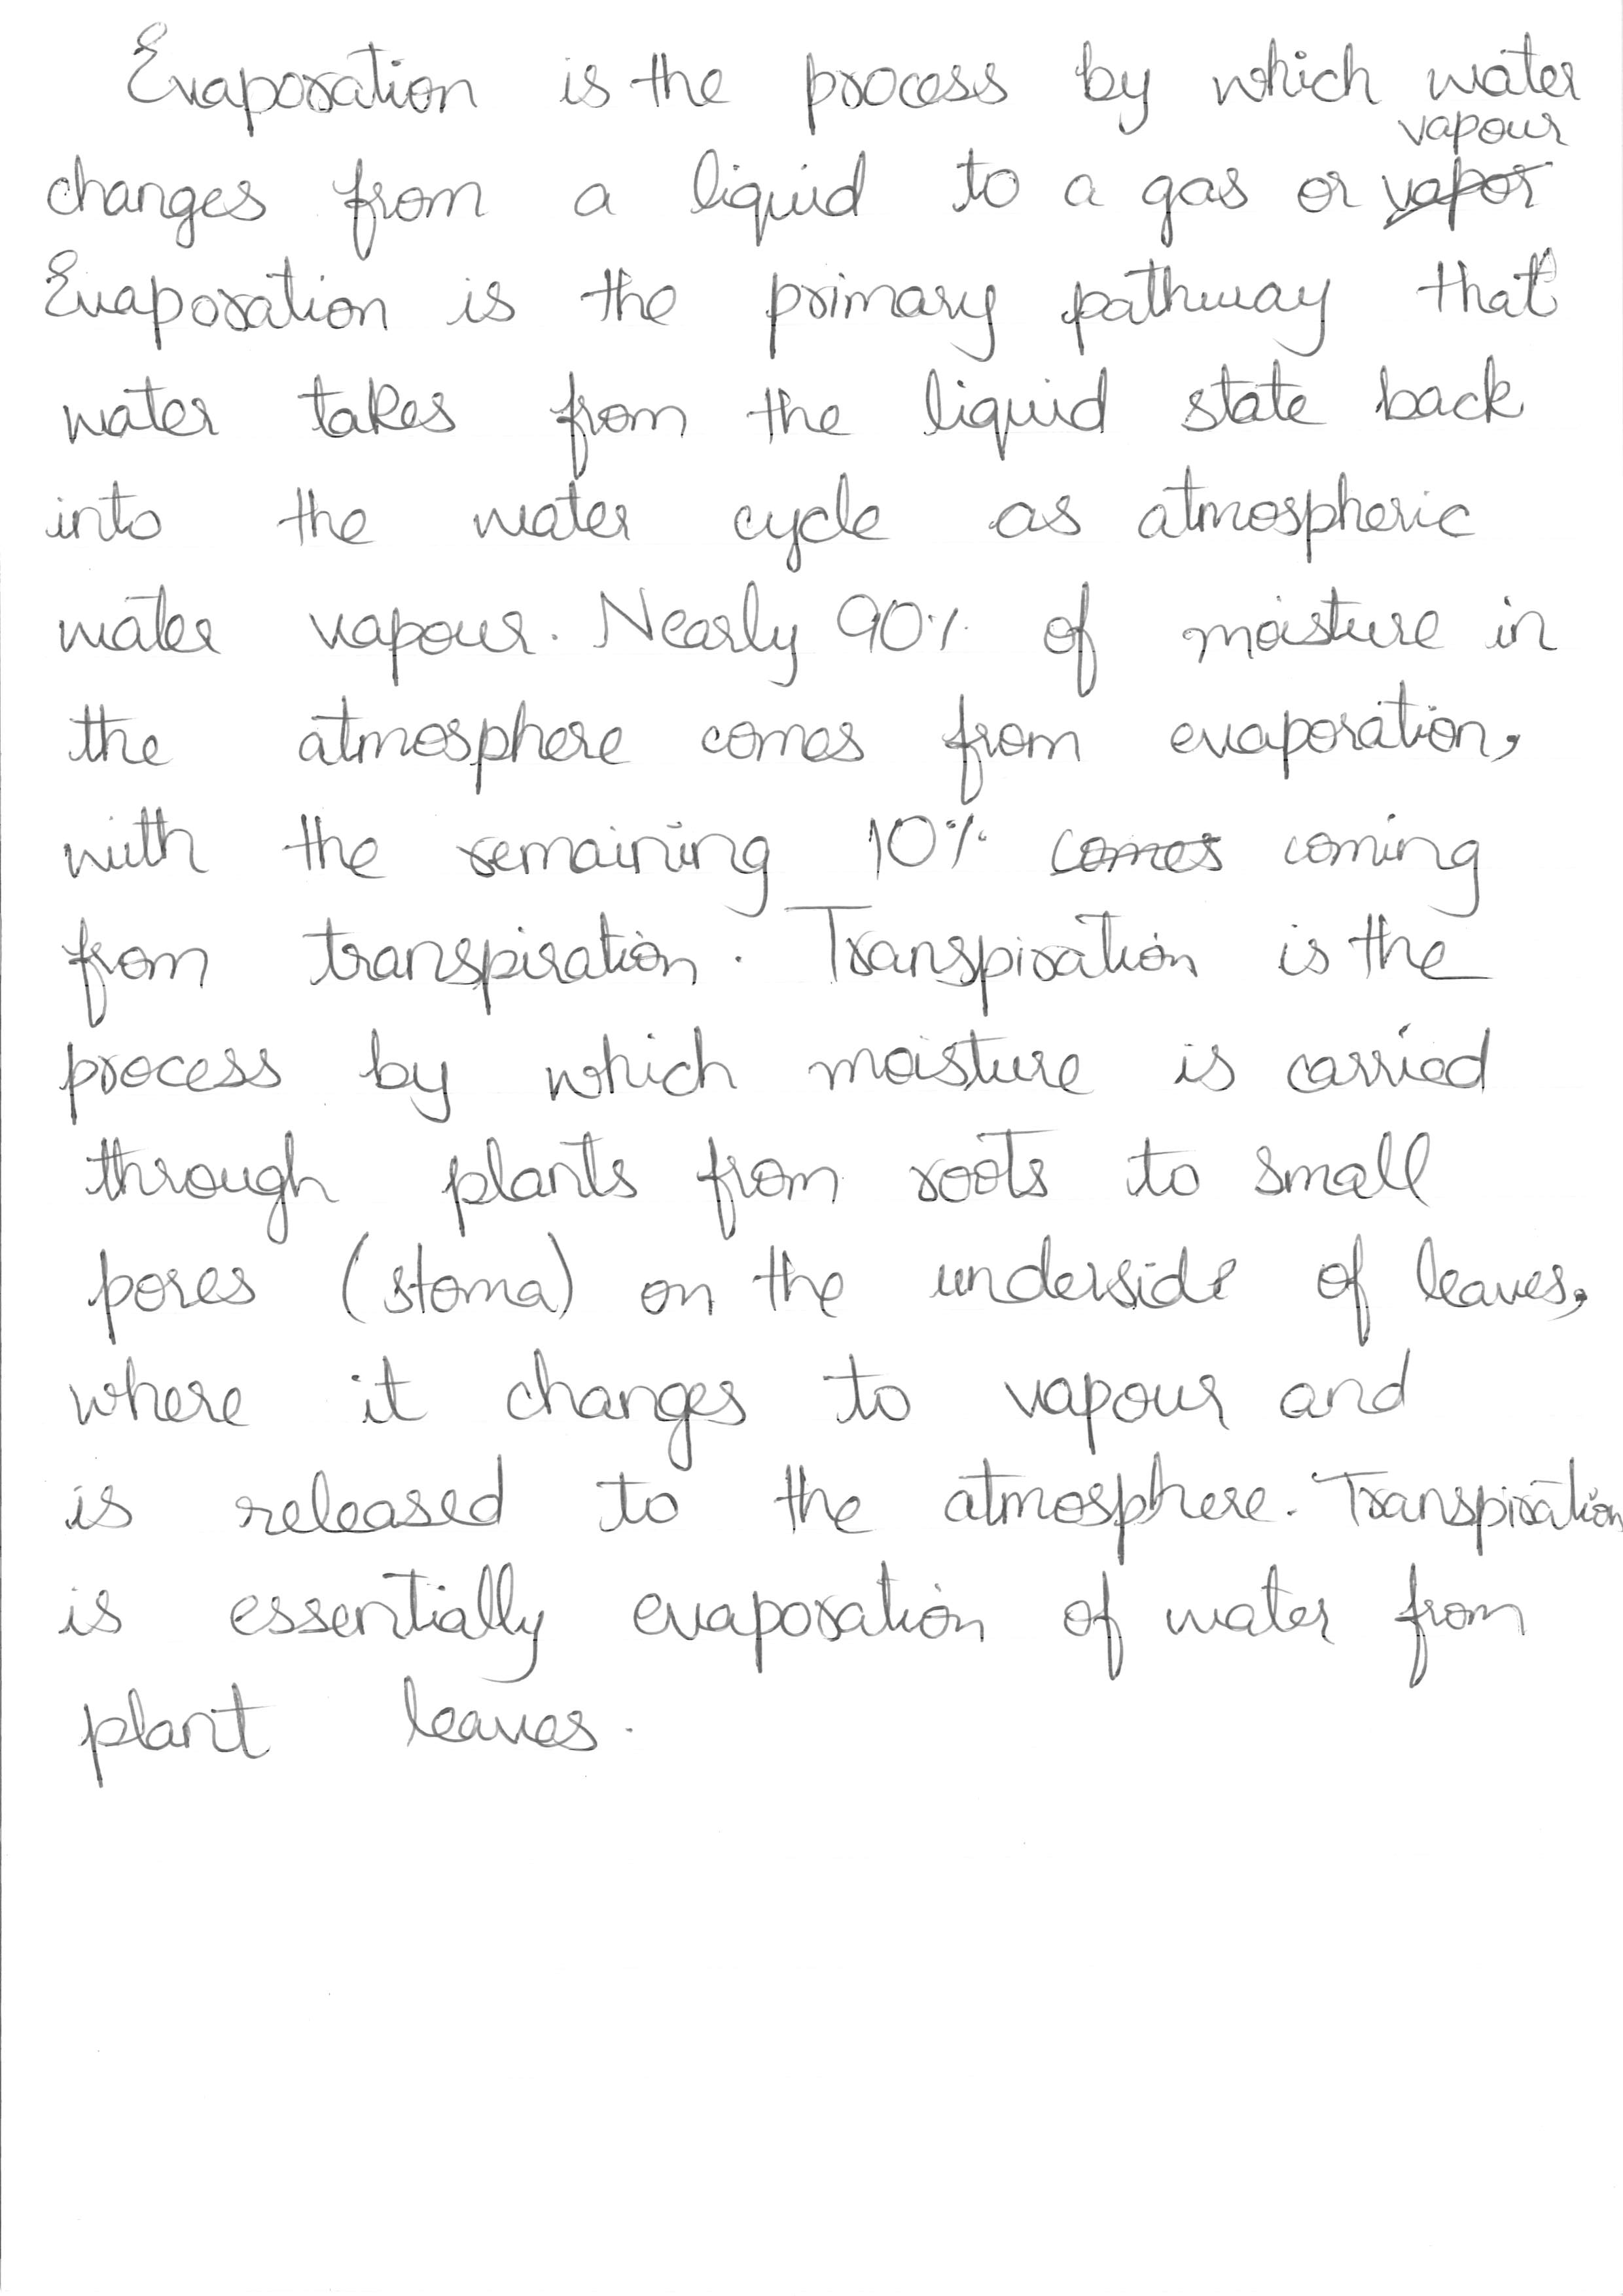 Evaporation is the process by which water
changes from a liquid to a gas or vapour
Evaporation is the primary pathway that
water takes from the liquid state back
into the water cycle as atmospheric
water vapour. Nearly 90% of moisture in
the atmosphere comes from evaporation,
with the remaining 10% comes coming
from transpiration. Transpiration is the
process by which moisture is carried
through plants from roots to small
pores (stoma) on the underside of leaves,
where it changes to vapour and
is released to the atmosphere. Transpiration
is essentially evaporation of water from
plant leaves.